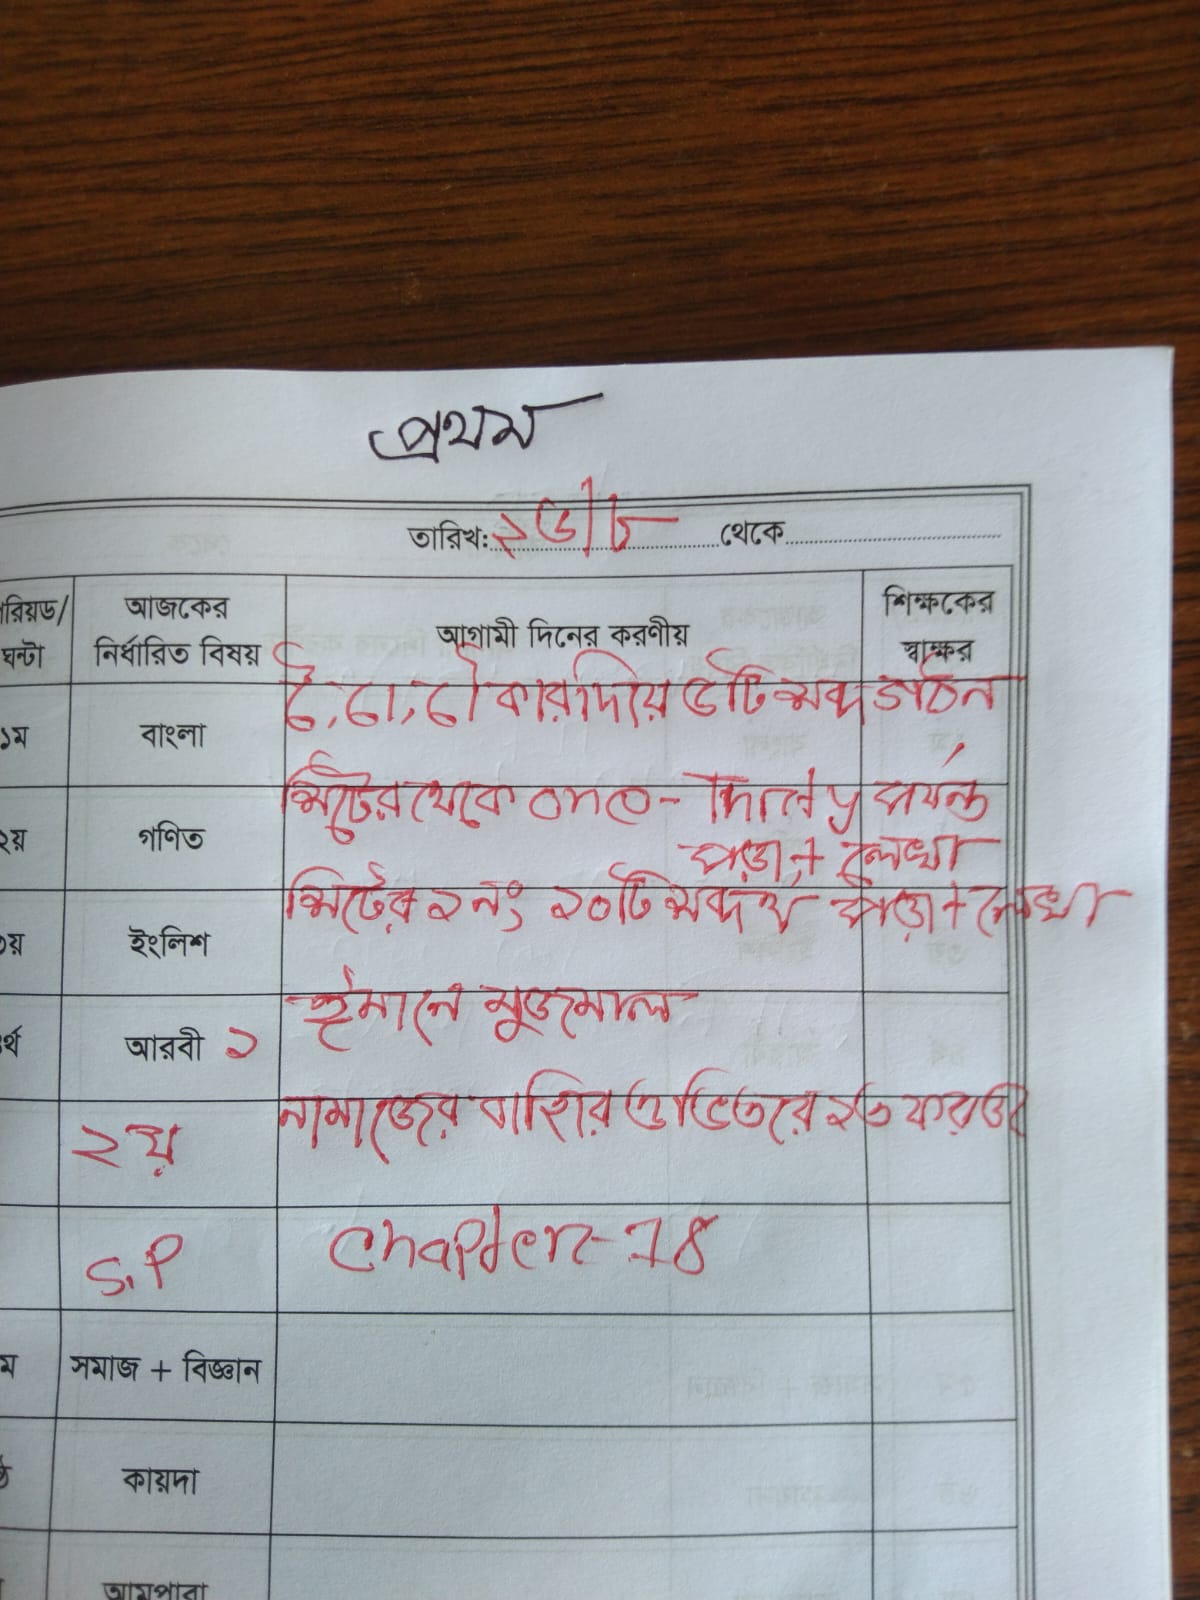 প্রথম
তারিখ: ২৬/৮ থেকে
রিয়ড/ ঘন্টা আজকের নির্ধারিত বিষয় আগামী দিনের করণীয় শিক্ষকের স্বাক্ষর
১ম বাংলা ৈ, ো, ৌ কার দিয়ে ৫টি শব্দ গঠন
২য় গণিত সিটের থেকে one- পর্যন্ত
পড়া + লেখা
৩য় ইংলিশ সিটের ২নং ২০টি শব্দার্থ পড়া + লেখা
র্থ আরবী ১ ঈমানে মুজমাল
২য় নামাজের বাহির ও ভিতরে ১৩ ফরজ
S.P Chapter-18
ম সমাজ + বিজ্ঞান
ষ্ঠ কায়দা
আমপারা